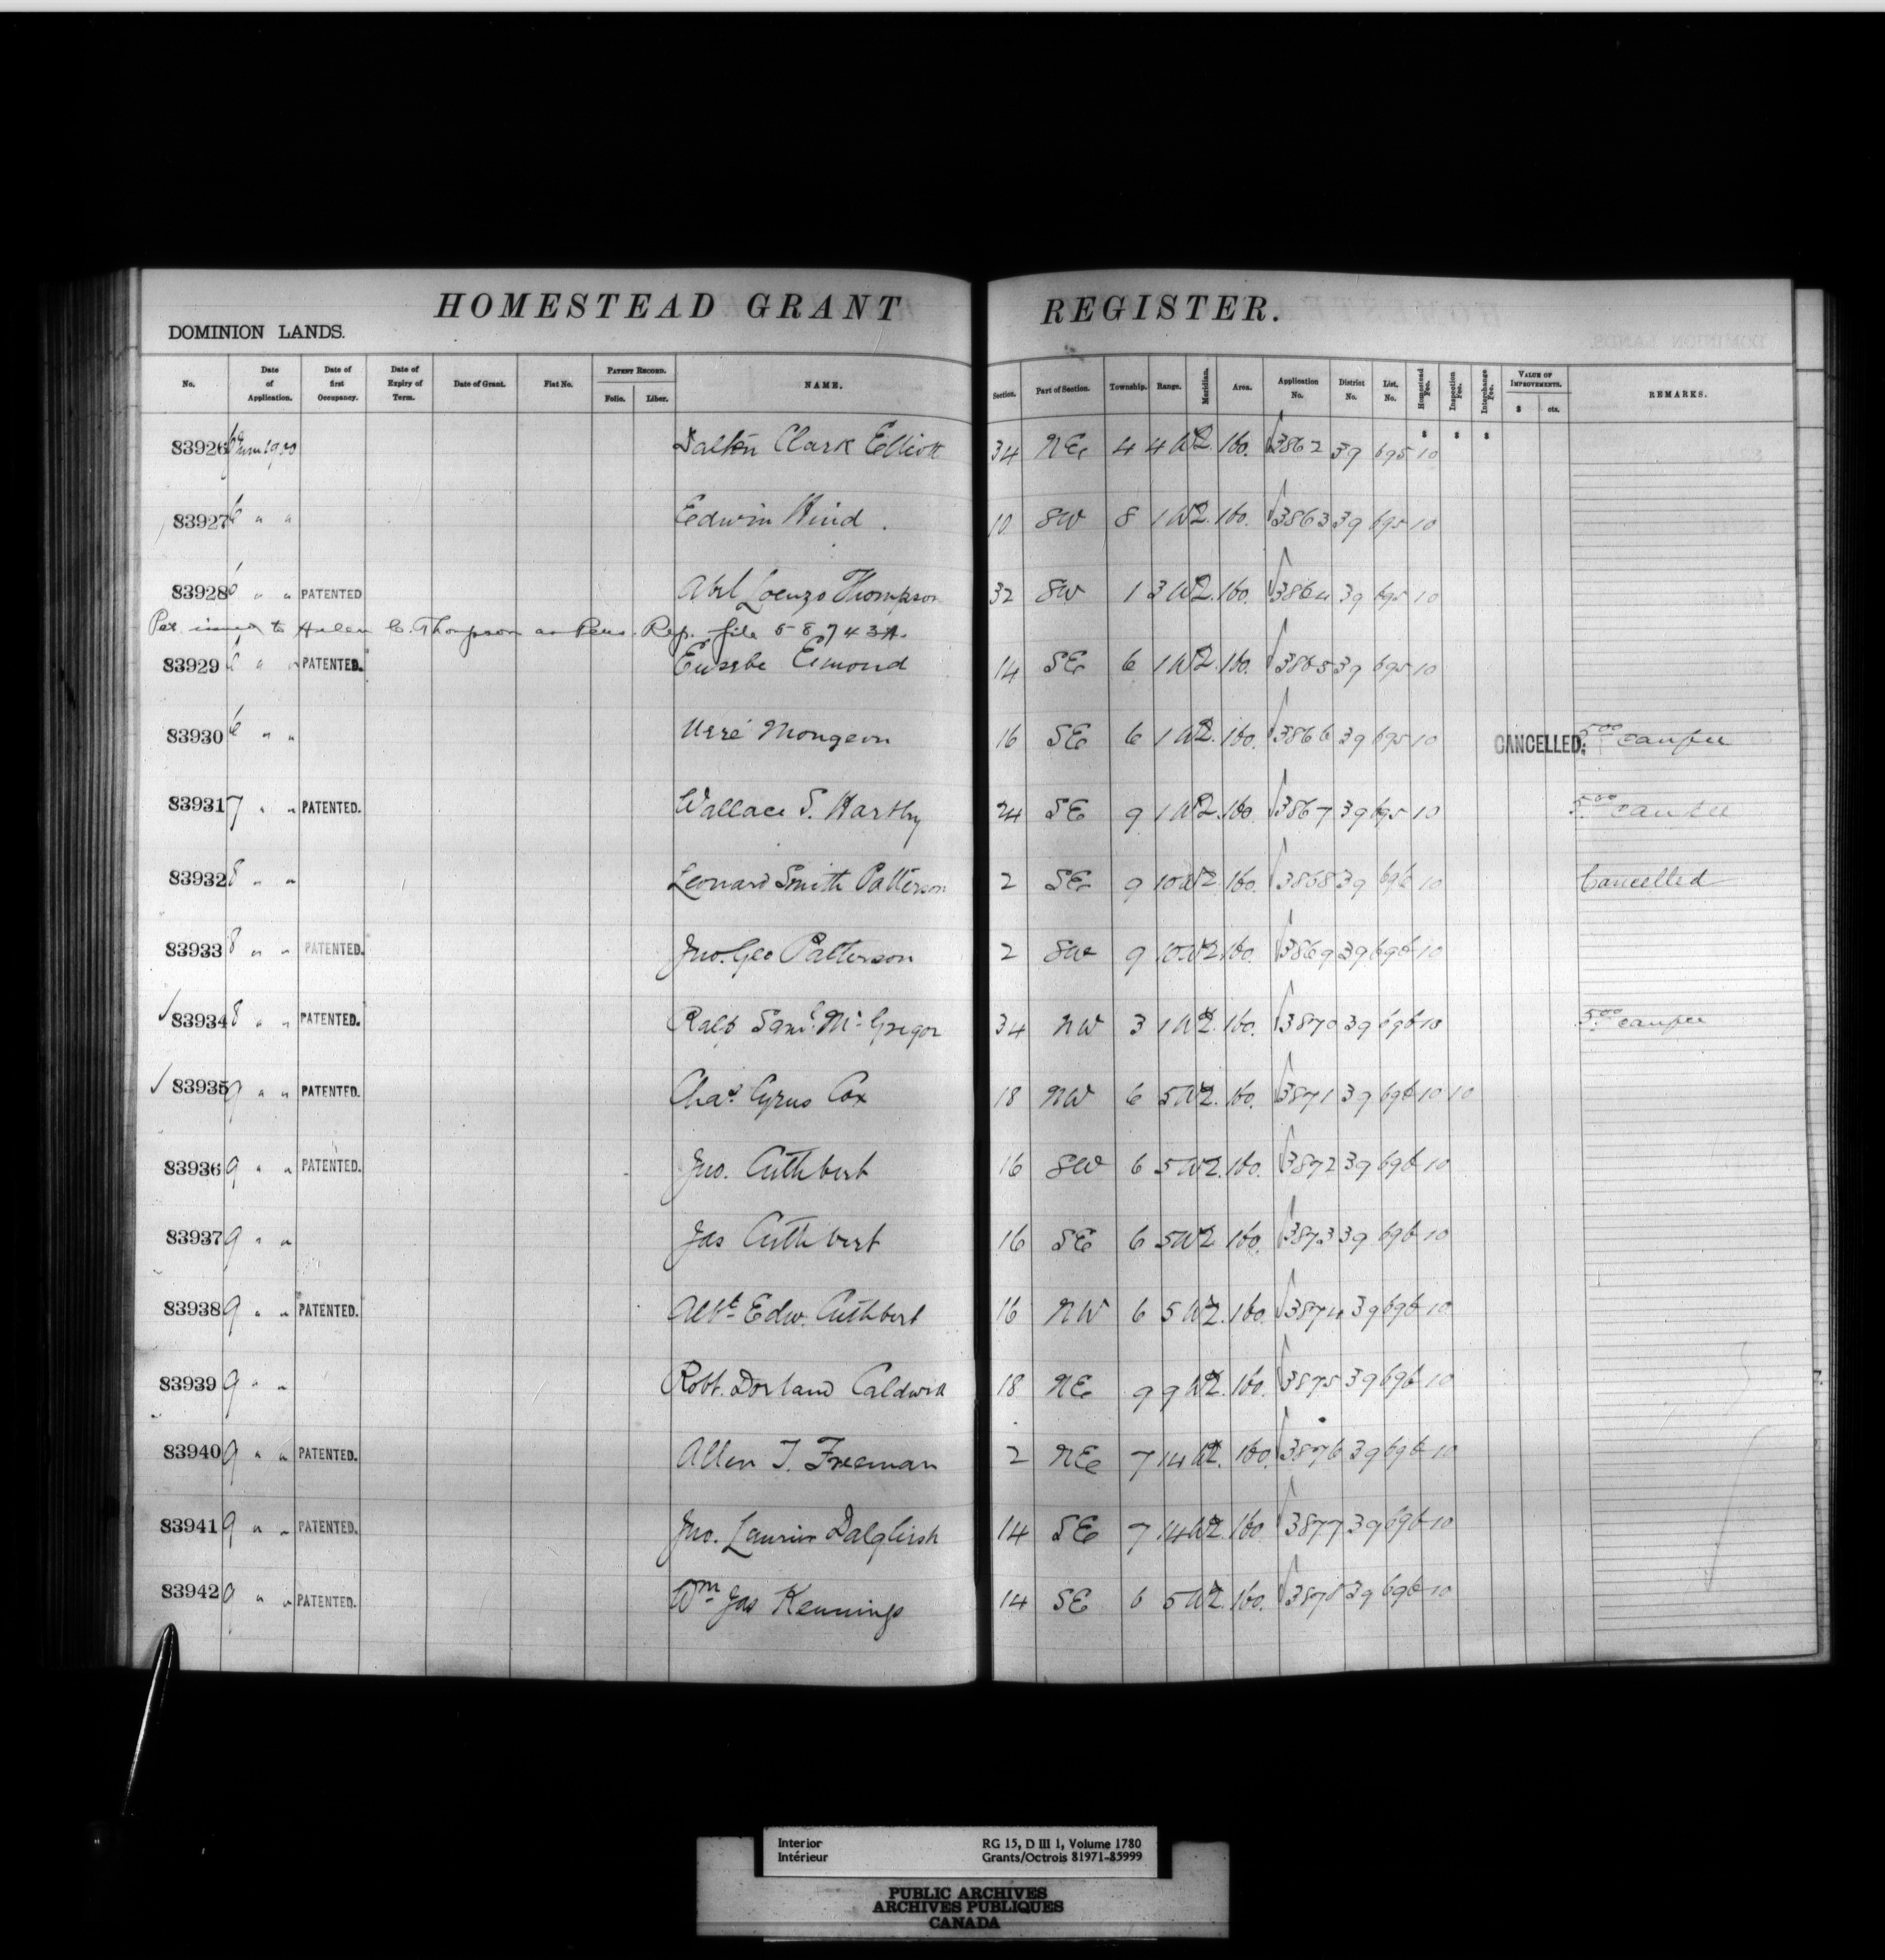 HOMESTEAD GRANT REGISTER.
DOMINION LANDS.
No. Date of Application. Date of first Occupancy. Date of Expiry of Term. Date of Grant. Fiat No. PATENT RECORD. Folio. Liber. NAME. Section. Part of Section. Township. Range. Meridian. Area. Application No. District No. List. No. Homestead Fee. Inspection Fee. Interchange Fee. VALUE OF IMPROVEMENTS. $ cts. REMARKS.
83926 6 Clark Elliott 34 NE 4 4 W2. 160. 3862 39 695 10
83927 6 " " Edwin Hind. 10 SW 8 1 W2. 160. 3863 39 695 10
83928 6 " " PATENTED Abel Lorenzo Thompson 32 SW 1 3 W2. 160. 3864 39 695 10
Pat. issued to Helen C. Thompson as Pers. Rep. file 58743A.
83929 6 " " PATENTED. Eusebe Eimond 14 SE 6 1 W2. 160. 3865 39 695 10
83930 6 " " Mongeon 16 SE 6 1 W2. 160. 3866 39 695 10 CANCELLED. 5.00
83931 7 " " PATENTED. Wallace S. 24 SE 9 1 W2. 160. 3867 39 695 10 5.00
83932 8 " " Leonard Smith Patterson 2 SE 9 10 W2. 160. 3868 39 696 10 Cancelled
83933 8 " " PATENTED. Jno. Geo Patterson 2 SW 9 10 W2. 160. 3869 39 696 10
✓ 83934 8 " " PATENTED. Saml. McGregor 34 NW 3 1 W2. 160. 3870 39 696 10 5.00
✓ 83935 9 " " PATENTED. Chas. Cyrus Cox 18 NW 6 5 W2. 160. 3871 39 696 10 10
83936 9 " " PATENTED. Jno. Cuthbert 16 SW 6 5 W2. 160. 3872 39 696 10
83937 9 " " Jas Cuthbert 16 SE 6 5 W2 160. 3873 39 696 10
83938 9 " " PATENTED. Albt. Edw. Cuthbert 16 NW 6 5 W2. 160. 3874 39 696 10
83939 9 " " Robt. Dorland Caldwell 18 NE 9 9 W2. 160. 3875 39 696 10
83940 9 " " PATENTED. Allen T. Freeman 2 NE 7 14 W2. 160. 3876 39 696 10
83941 9 " " PATENTED. Jno. Laurier Dalgliesh 14 SE 7 14 W2. 160 3877 39 696 10
83942 9 " " PATENTED. Wm Jas Kennings 14 SE 6 5 W2. 160. 3878 39 696 10
Interior RG 15, D III 1, Volume 1780
Intérieur Grants/Octrois 81971-85999
PUBLIC ARCHIVES
ARCHIVES PUBLIQUES
CANADA